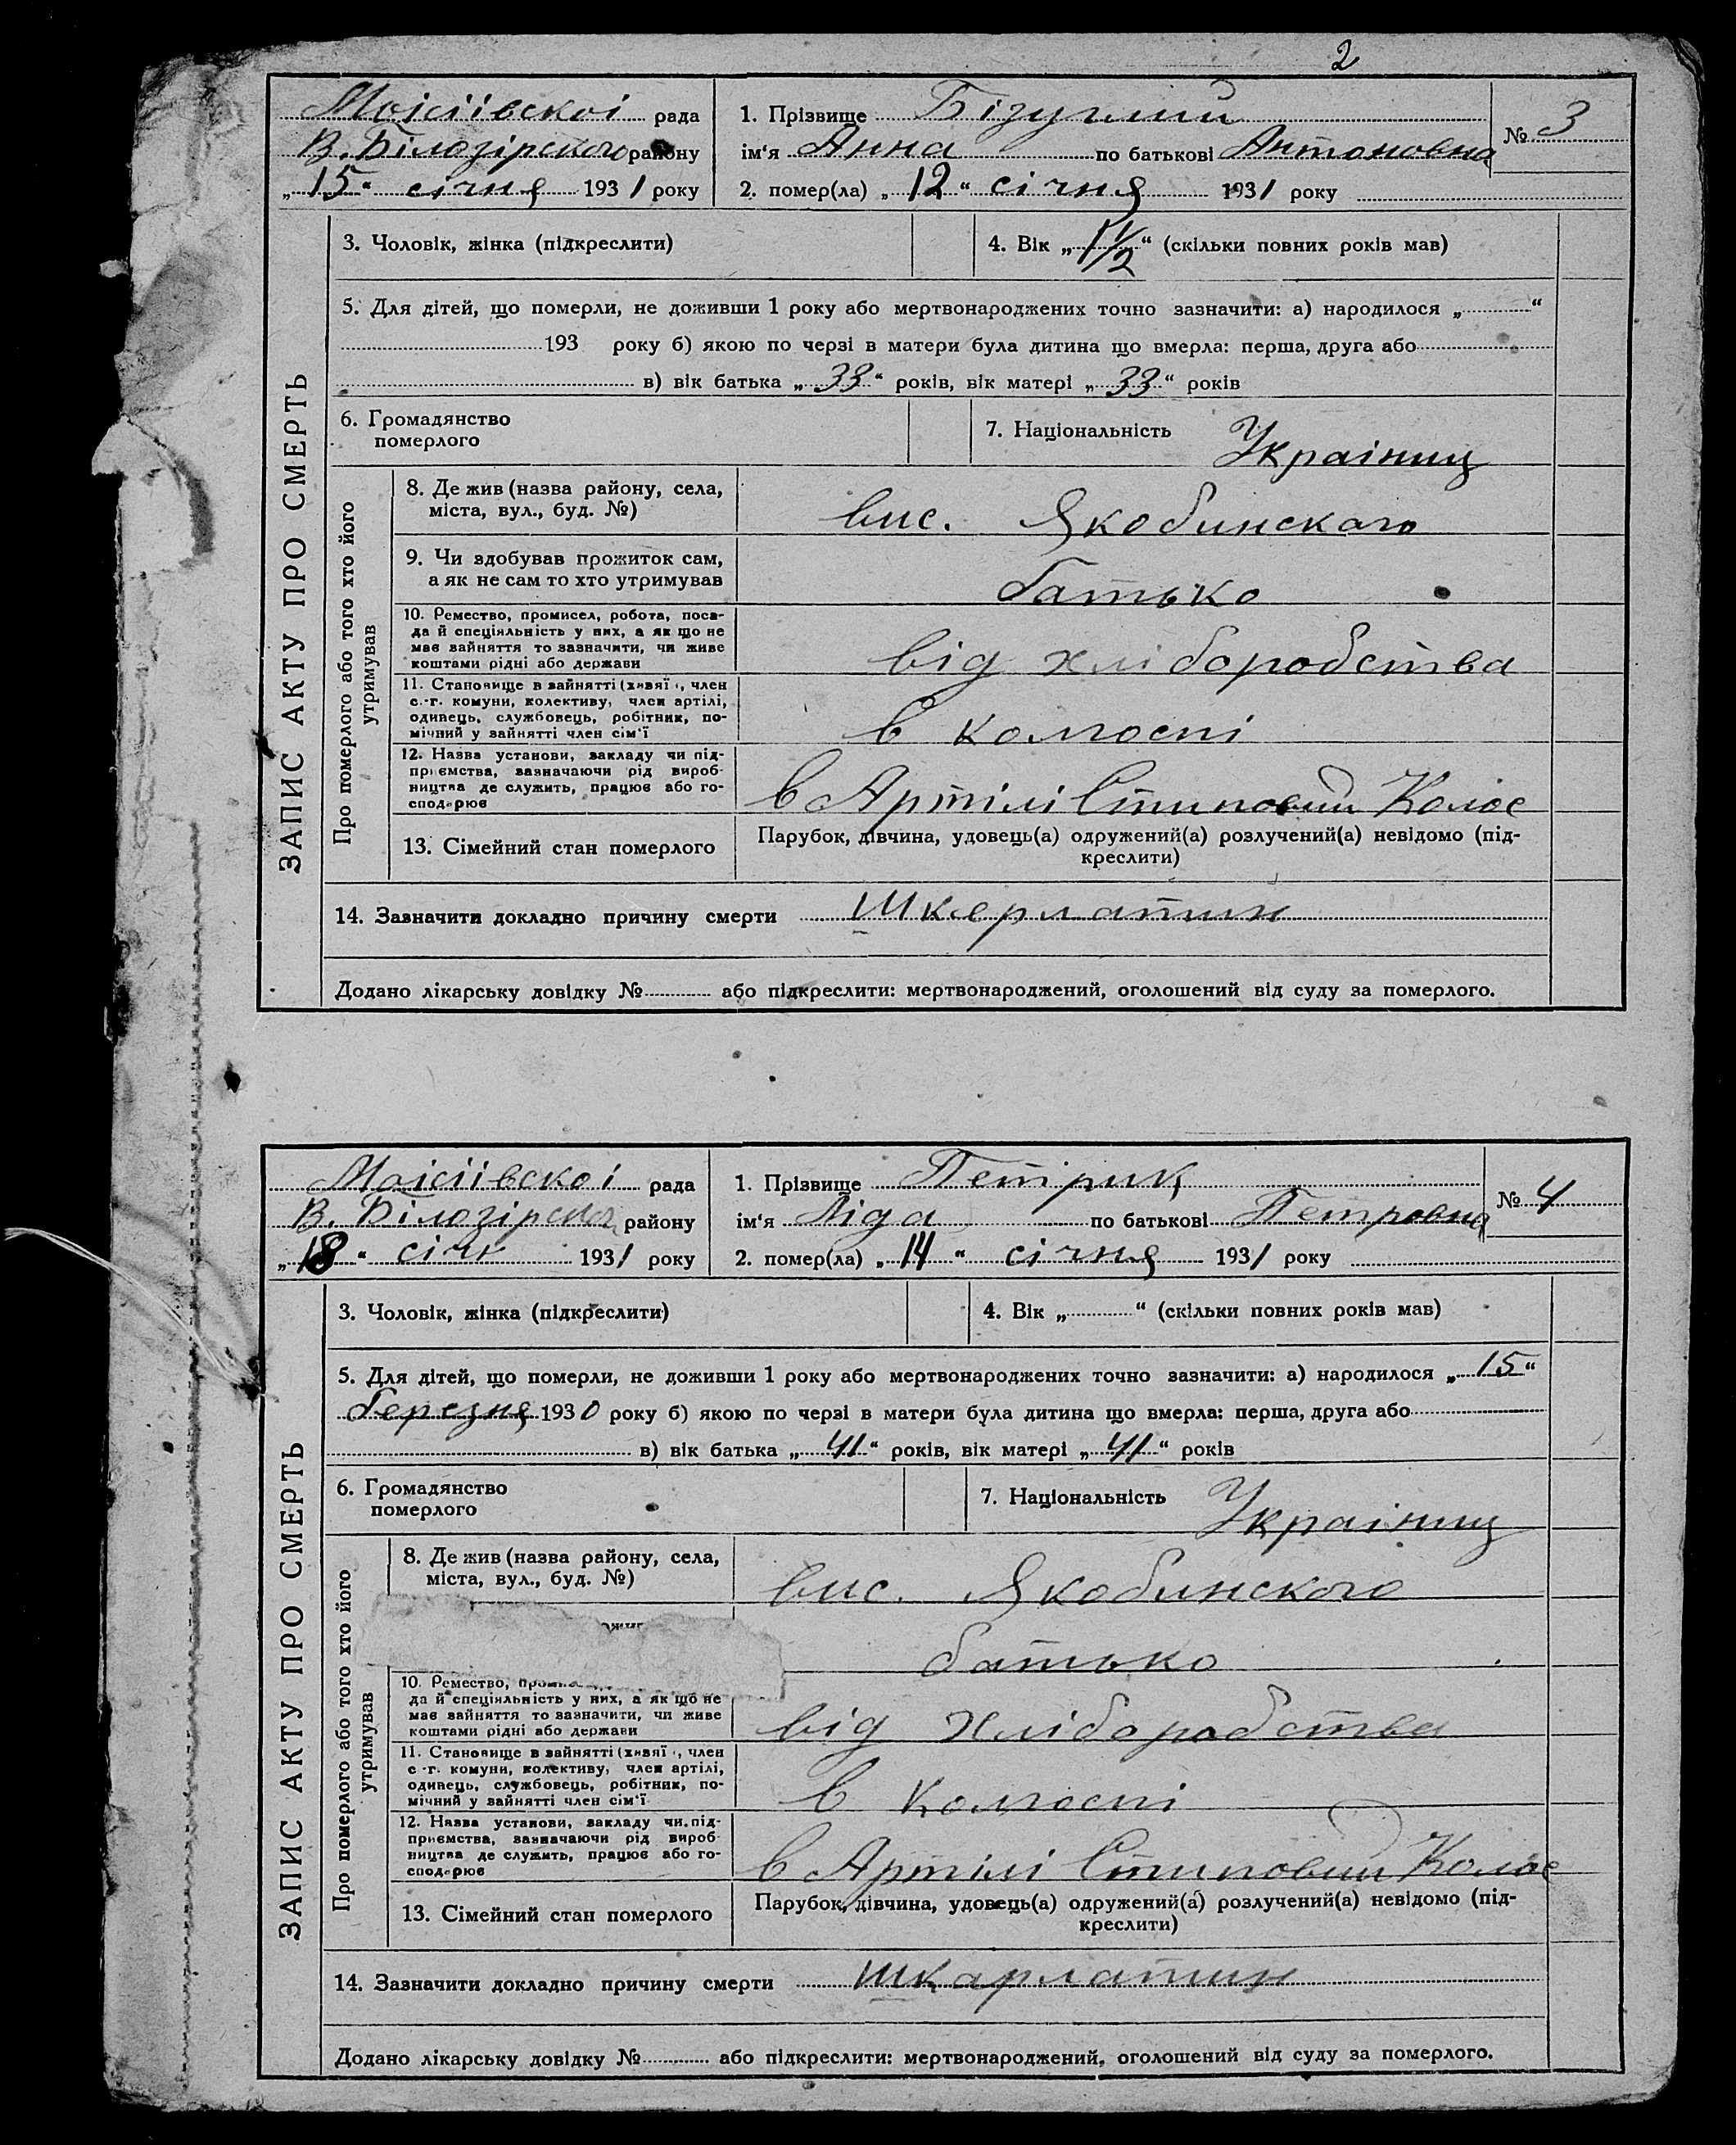 2
Моісіівскоі рада
В. Білозірского району
„15“ січня 1931 року
1. Прізвище
ім'я Анна по батькові Антоновна
№ 3
2. помер(ла) „12“ січня 1931 року
3. Чоловік, жінка (підкреслити)
4. Вік „1 1/2“ (скільки повних років мав)
5. Для дітей, що померли, не доживши 1 року або мертвонароджених точно зазначити: а) народилося „ “
193 року б) якою по черзі в матери була дитина що вмерла: перша, друга або
в) вік батька „33“ років, вік матері „33“ років
6. Громадянство
померлого
7. Національність Українц
ЗАПИС АКТУ ПРО СМЕРТЬ
Про померлого або того хто його
утримував
8. Де жив (назва району, села,
міста, вул., буд. №)
вис. Якобинскаго
9. Чи здобував прожиток сам,
а як не сам то хто утримував
батько
10. Ремество, промисел, робота, поса-
да й спеціяльність у них, а як що не
має зайняття то зазначити, чи живе
коштами рідні або держави
від хліборобства
11. Становище в зайнятті (хазяї, член
с.-г. комуни, колективу, член артілі,
одинець, службовець, робітник, по-
мічний у зайнятті член сім'ї
в колгоспі
12. Назва установи, закладу чи під-
приємства, зазначаючи рід вироб-
ництва де служить, працює або го-
сподарює
в Артілі Стиповий Колос
13. Сімейний стан померлого
Парубок, дівчина, удовець(а) одружений(а) розлучений(а) невідомо (під-
креслити)
14. Зазначити докладно причину смерти Шкерлатин
Додано лікарську довідку № або підкреслити: мертвонароджений, оголошений від суду за померлого.
Моісіівскоі рада
В. Білозірског району
„18“ січн 1931 року
1. Прізвище Петрик
ім'я Ліда по батькові Петровна
№ 4
2. помер(ла) „14“ січня 1931 року
3. Чоловік, жінка (підкреслити)
4. Вік „ “ (скільки повних років мав)
5. Для дітей, що померли, не доживши 1 року або мертвонароджених точно зазначити: а) народилося „15“
березня 1930 року б) якою по черзі в матери була дитина що вмерла: перша, друга або
в) вік батька „41“ років, вік матері „41“ років
6. Громадянство
померлого
7. Національність Українц
ЗАПИС АКТУ ПРО СМЕРТЬ
Про померлого або того хто його
утримував
8. Де жив (назва району, села,
міста, вул., буд. №)
вис. Якобинского
батько
10. Ремество,
да й спеціяльність у них, а як що не
має зайняття то зазначити, чи живе
коштами рідні або держави
від хліборобства
11. Становище в зайнятті (хазяї, член
с.-г. комуни, колективу, член артілі,
одинець, службовець, робітник, по-
мічний у зайнятті член сім'ї
в колгоспі
12. Назва установи, закладу чи під-
приємства, зазначаючи рід вироб-
ництва де служить, працює або го-
сподарює
в Артілі Стиповий Колос
13. Сімейний стан померлого
Парубок, дівчина, удовець(а) одружений(а) розлучений(а) невідомо (під-
креслити)
14. Зазначити докладно причину смерти шкарлатин
Додано лікарську довідку № або підкреслити: мертвонароджений, оголошений від суду за померлого.